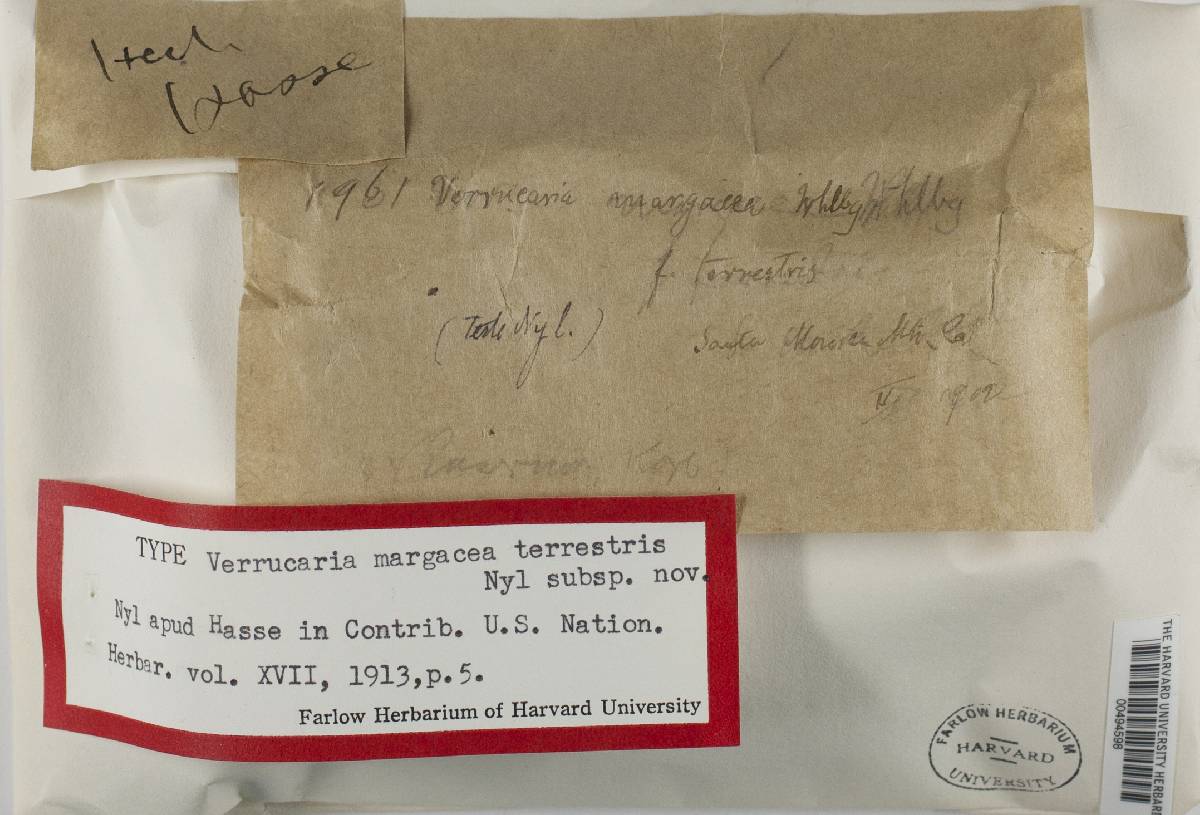 Hasse
1961 Verrucaria margacea Whlbg Whlbg
f. terrestris
(Teste Nyl.) Santa Monica Mts. Cal
1902
TYPE Verrucaria margacea terrestris
Nyl subsp. nov.
Nyl apud Hasse in Contrib. U.S. Nation.
Herbar. vol. XVII, 1913,p.5.
Farlow Herbarium of Harvard University
FARLOW HERBARIUM
HARVARD
UNIVERSITY
THE HARVARD UNIVERSITY HERBARI
00494598